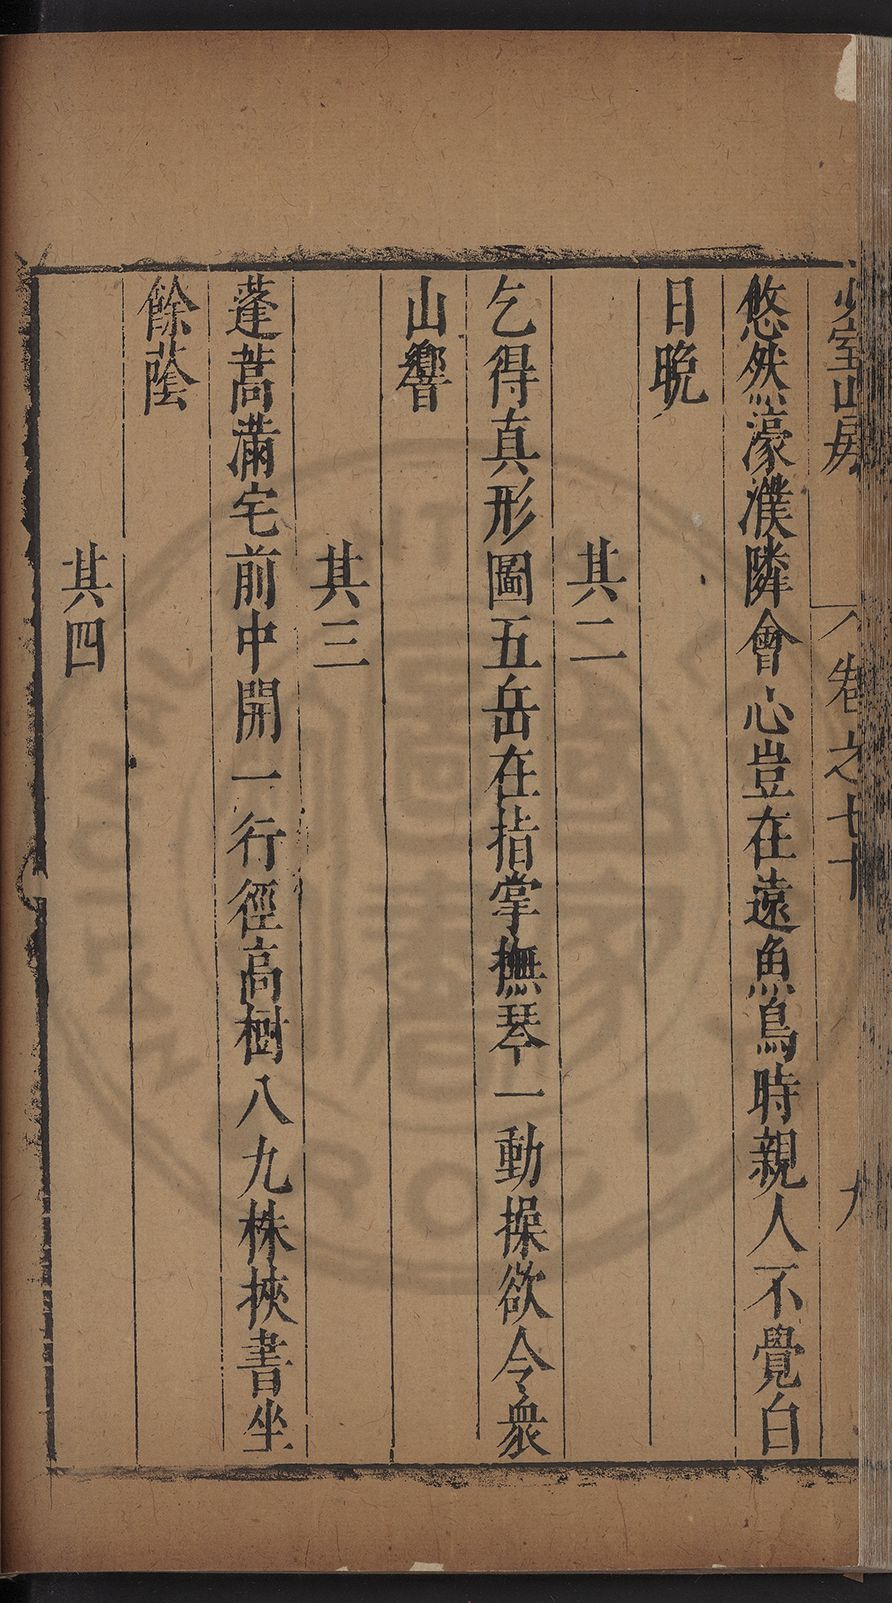 少室山房 卷之七十 九
悠然濠濮隣會心豈在遠魚鳥時親人不覺白
日晩
其二
乞得真形圖五岳在指掌撫琴一動操欲令衆
山響
其三
蓬蒿滿宅前中開一行徑高樹八九株挾書坐
餘蔭
其四